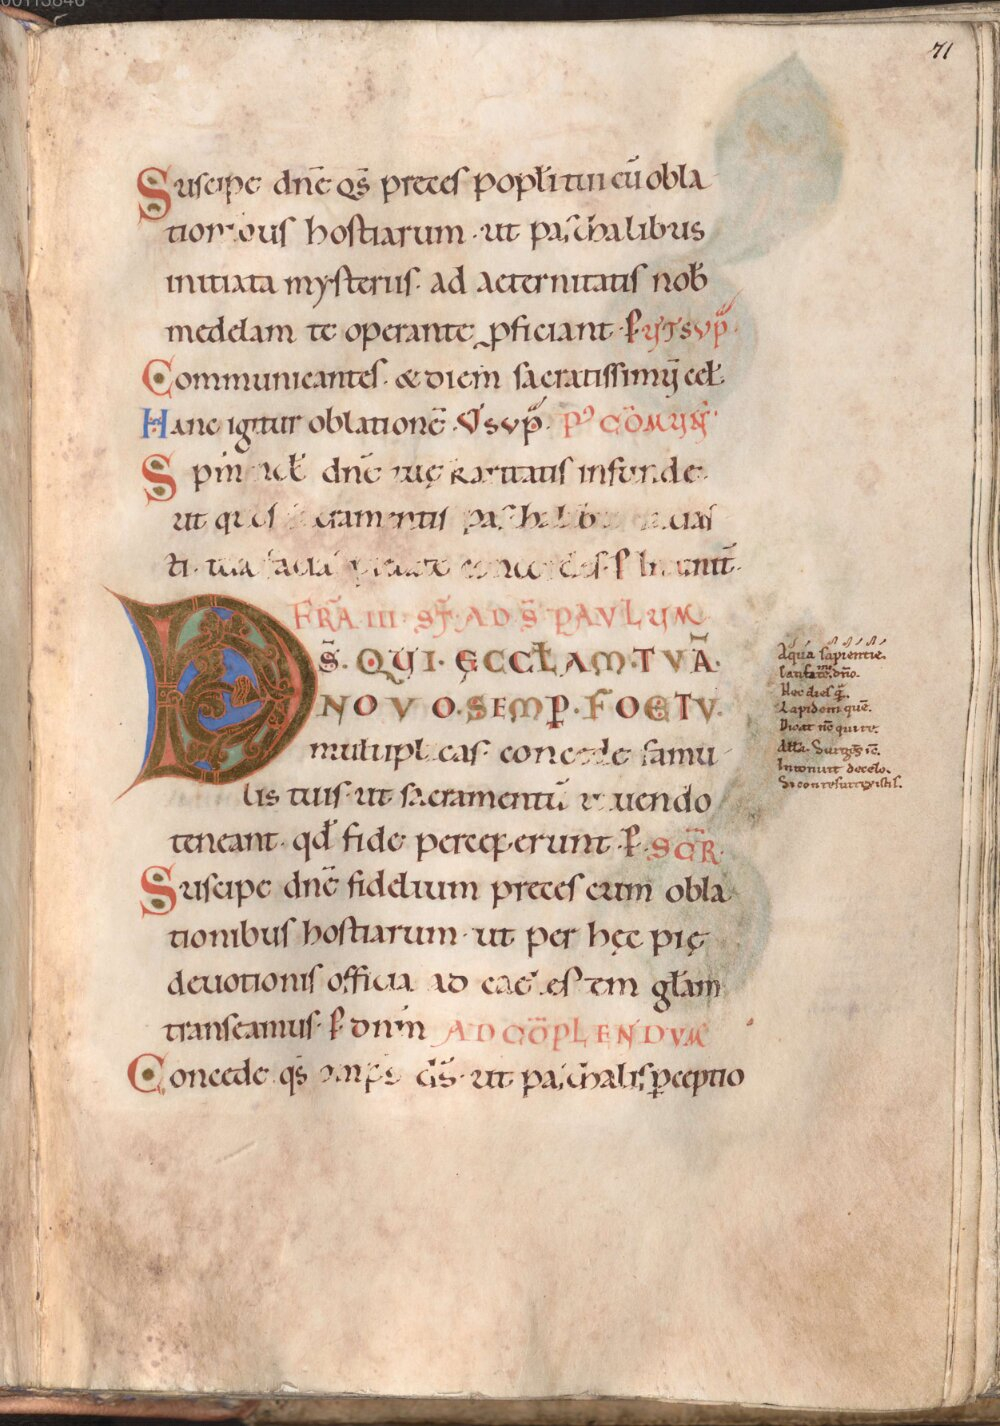 71
Suscipe dn̄e qs̄ preces popłi tui cū obla
tionibus hostiarum· ut paschalibus
initiata mysteriis· ad aeternitatis nob̄
medelam te operante ꝓficiant· ꝑ VT SVP̄
Communicantes· & diem sacratissimū cel̄
Hanc igitur oblationē· Vt svp̄· P' COMVN̄
Spm̄ dn̄e tuę karitatis infunde·
ut quos sacramentis paschalibus
ti· tua facias pietate concordes· ꝑ In unit̄·
FR̄A III· ST̄· AD S̄ PAVLVM
DS̄· QVI· ĘCCL̄AM· TVĀ·
NOVO· SEMꝐ· FOETV·
multiplicas· concede famu
lis tuis· ut sacramentū uiuendo
teneant· qđ fide perceperunt· ꝑ· SECR̄
Suscipe dn̄e fidelium preces cum obla
tionibus hostiarum· ut per hęc pię
deuotionis officia ad caelestem gl̄am
transeamus· ꝑ dnm̄ AD CŌPLENDVM
Concede qs̄ omps̄ ds̄· ut paschalis ꝑceptio
Aqua sapientie.
Cantate dn̄o.
Hec dies q̄.
Lapidem quē.
Dicat nc̄ quire.
Allā. Surgens ie̅.
Intonuit de celo.
Si conresurrexistis.